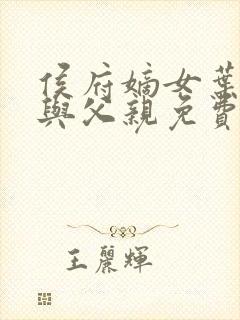 侯府嫡女葉
與父親免費
王麗輝